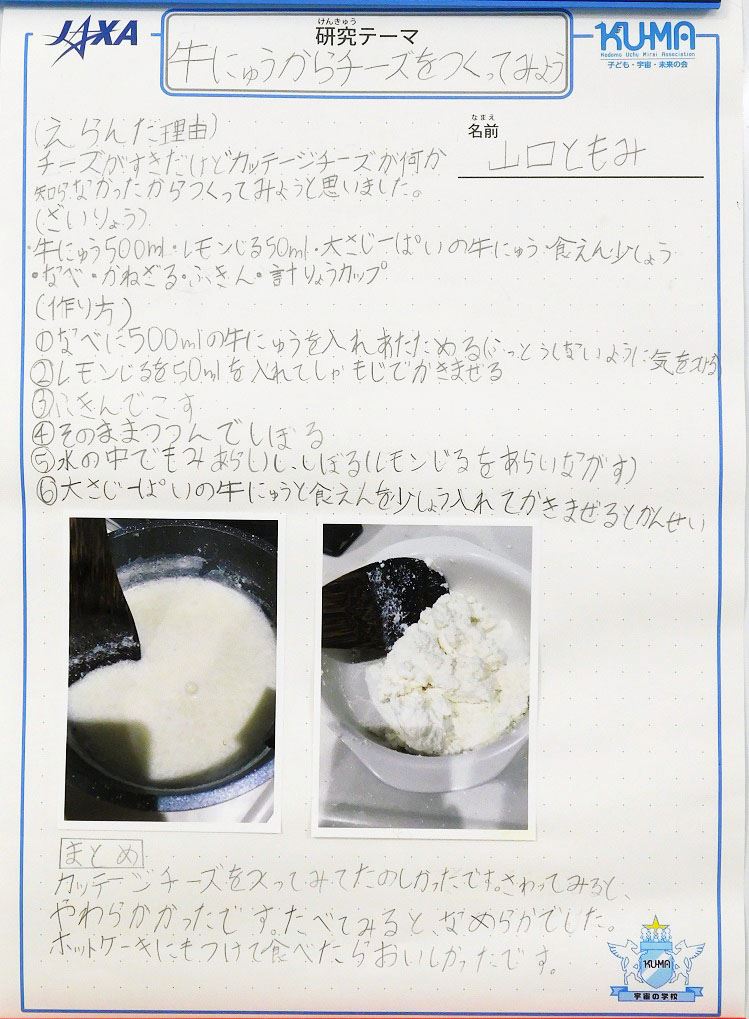 JAXA
けんきゅう
研究テーマ
牛にゅうからチーズをつくってみよう
KU-MA
Kodomo Uchu Mirai Association
子ども・宇宙・未来の会
(えらんだ理由)
なまえ
名前
山口ともみ
チーズがすきだけどカッテージチーズが何か
知らなかったからつくってみようと思いました。
(ざいりょう)
・牛にゅう500ml・レモンじる50ml・大さじ一ぱいの牛にゅう・食えん少しょう
・なべ・かねざる・ふきん・計りょうカップ
(作り方)
①なべに500mlの牛にゅうを入れあたためる(ふっとうしないように気をつける)
②レモンじるを50mlを入れてしゃもじでかきまぜる
③ふきんでこす
④そのままつつんでしぼる
⑤水の中でもみあらいし、しぼる(レモンじるをあらいながす)
⑥大さじ一ぱいの牛にゅうと食えんを少しょう入れてかきまぜるとかんせい
まとめ
カッテージチーズをつくってみてたのしかったです。さわってみると、
やわらかかったです。たべてみると、なめらかでした。
ホットケーキにもつけて食べたらおいしかったです。
KU-MA
宇宙の学校